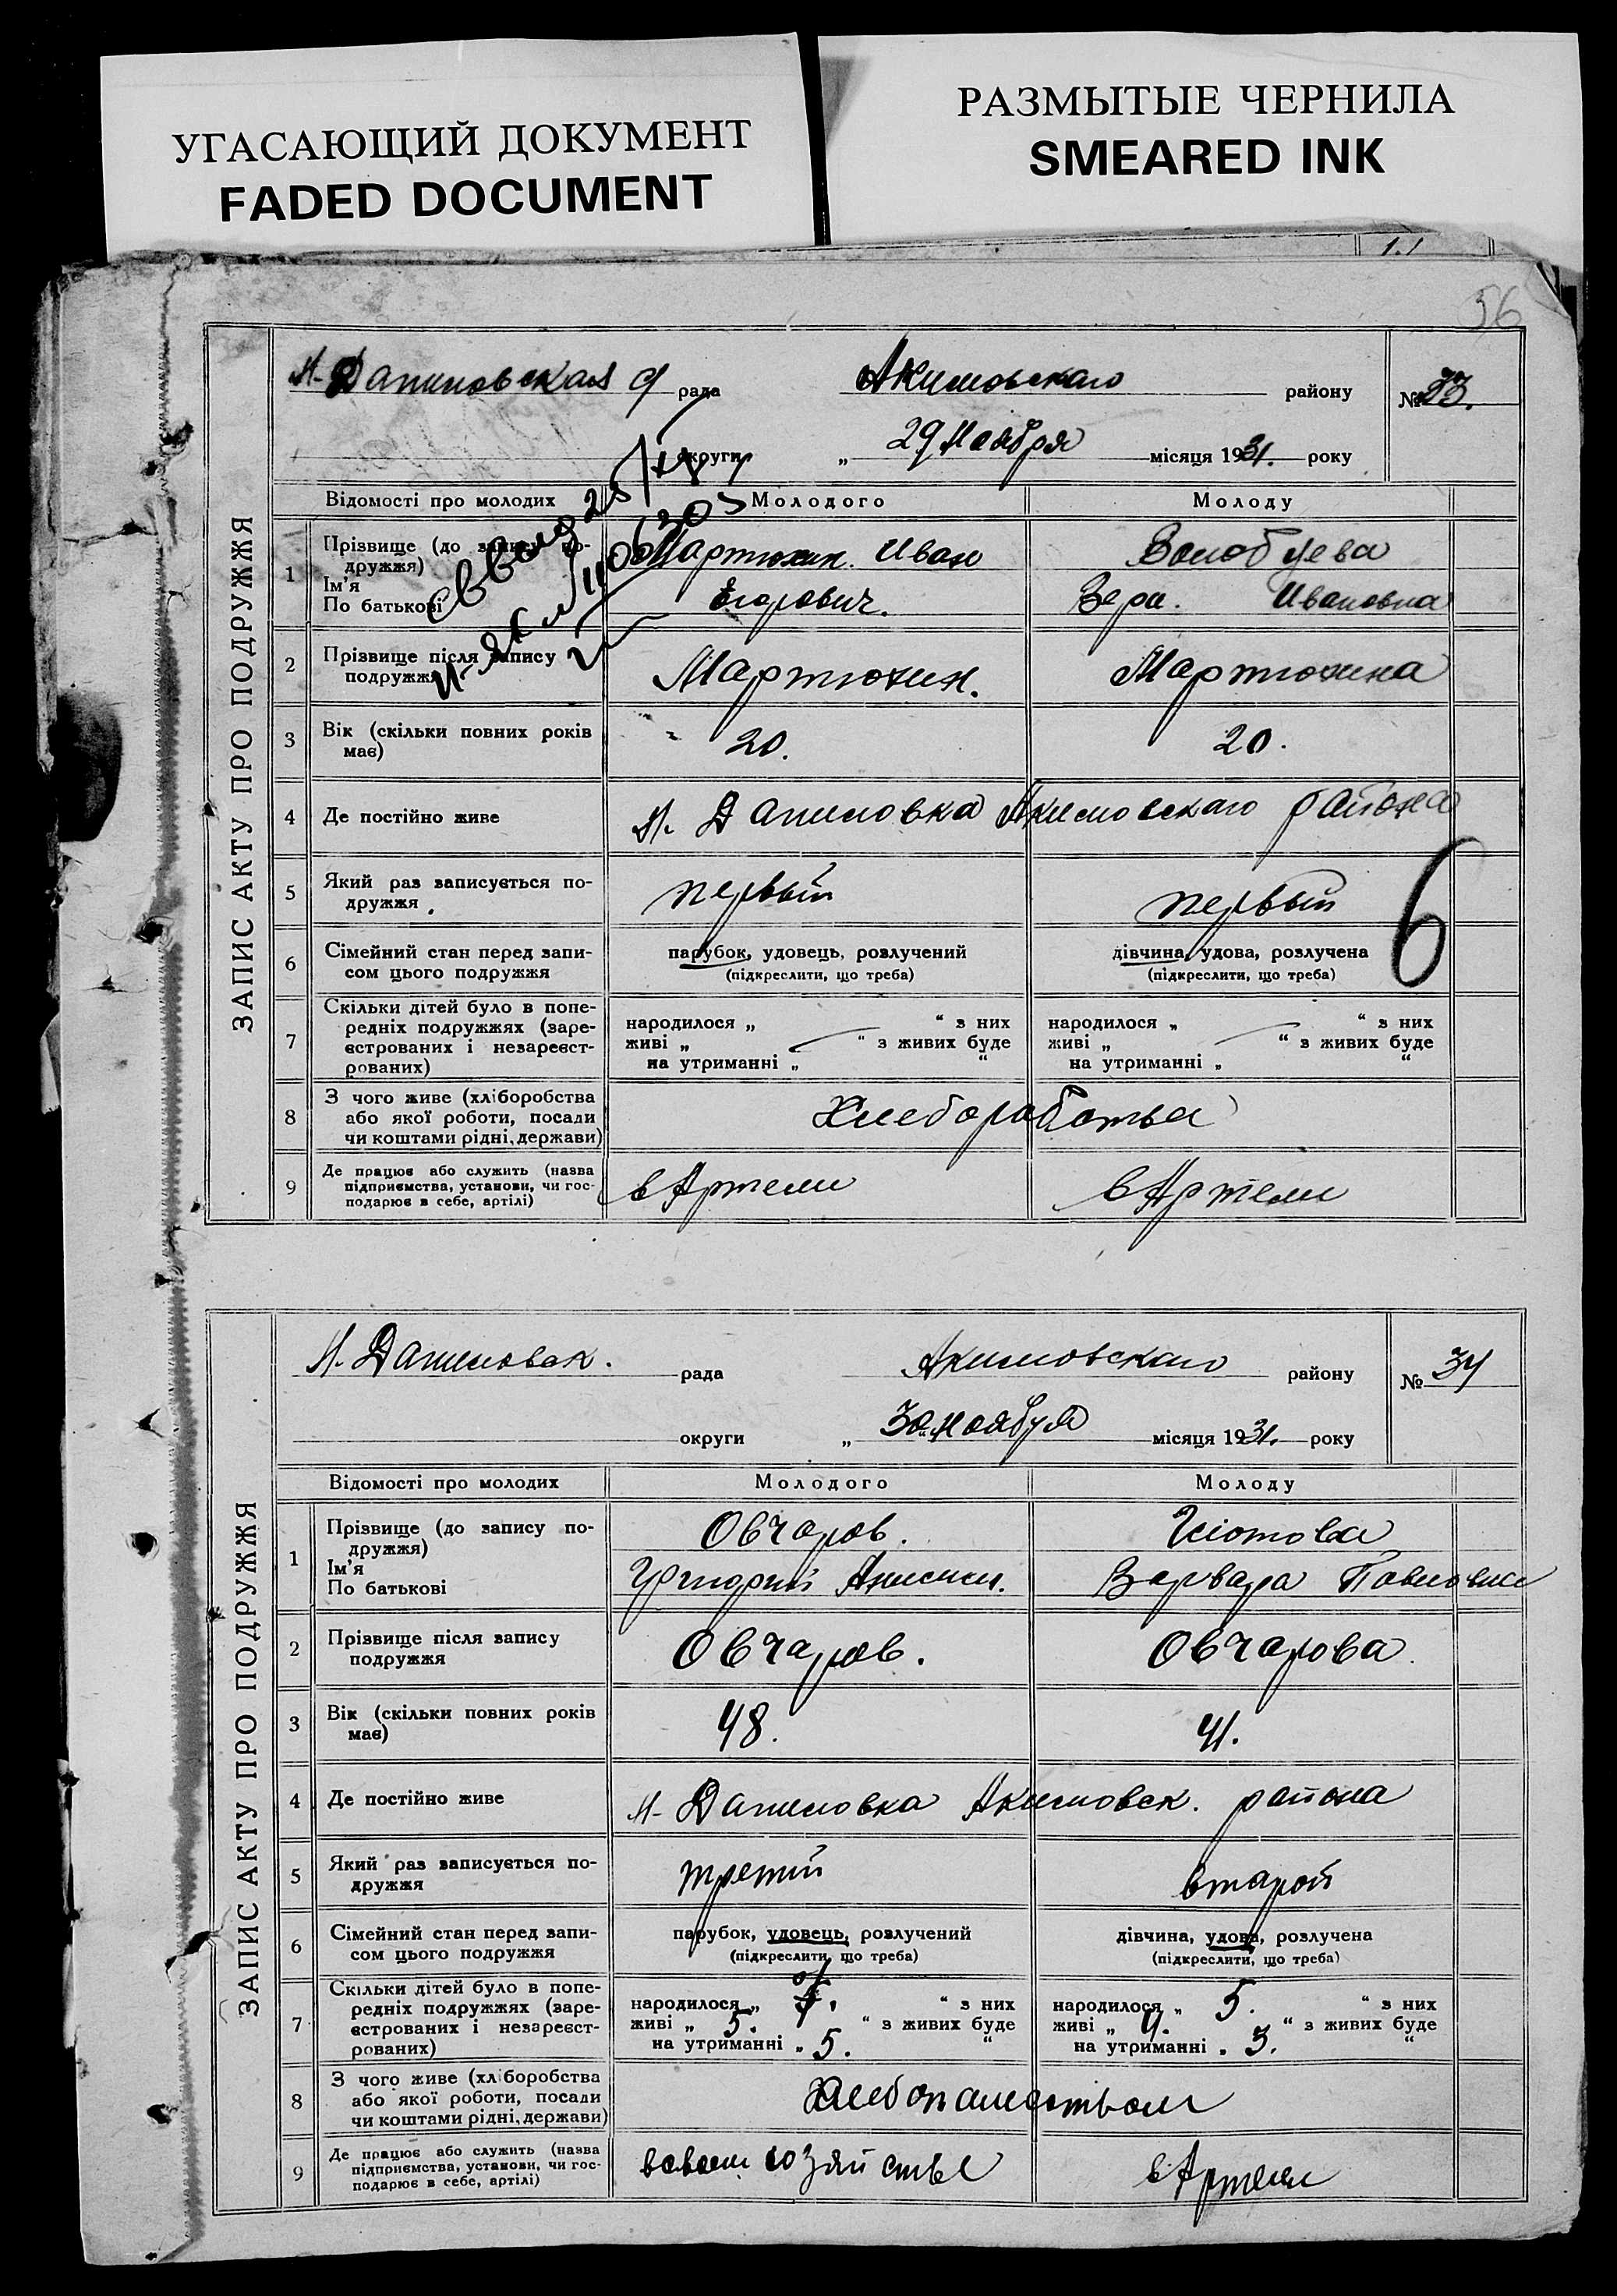 УГАСАЮЩИЙ ДОКУМЕНТ
FADED DOCUMENT
РАЗМЫТЫЕ ЧЕРНИЛА
SMEARED INK
56
ЗАПИС АКТУ ПРО ПОДРУЖЖЯ
Н-Даниловская рада Акимовскаго району № 33.
округи „ 29 Ноября місяця 1931. року
Відомості про молодих Молодого Молоду
1 Прізвище (до запису по-
дружжя)
Ім'я
По батькові
Мартюхин. Иван
Егорович.
Вера. Ивановна
2 Прізвище після запису
подружжя
Мартюхин. Мартюхина
3 Вік (скільки повних років
має)
20. 20.
4 Де постійно живе Н. Даниловка Акимовскаго района
5 Який раз записується по-
дружжя
первый первый
6
6 Сімейний стан перед запи-
сом цього подружжя
парубок, удовець, розлучений
(підкреслити, що треба)
дівчина, удова, розлучена
(підкреслити, що треба)
7 Скільки дітей було в попе-
редніх подружжях (заре-
єстрованих і незареєст-
рованих)
народилося „ “ з них
живі „ “ з живих буде
на утриманні „ “
народилося „ “ з них
живі „ “ з живих буде
на утриманні „ “
8 З чого живе (хліборобства
або якої роботи, посади
чи коштами рідні, держави)
9 Де працює або служить (назва
підприємства, установи, чи гос-
подарює в себе, артілі)
в Артели в Артели
ЗАПИС АКТУ ПРО ПОДРУЖЖЯ
Н-Даниловск. рада Акимовскаго району № 34
округи „ 30 Ноября місяця 1931. року
Відомості про молодих Молодого Молоду
1 Прізвище (до запису по-
дружжя)
Ім'я
По батькові
Овчаров.
Григорий
Варвара Павловна
2 Прізвище після запису
подружжя
Овчаров. Овчарова
3 Вік (скільки повних років
має)
48. 41.
4 Де постійно живе Н-Даниловка Акимовск. района
5 Який раз записується по-
дружжя
третий второй
6 Сімейний стан перед запи-
сом цього подружжя
парубок, удовець, розлучений
(підкреслити, що треба)
дівчина, удова, розлучена
(підкреслити, що треба)
7 Скільки дітей було в попе-
редніх подружжях (заре-
єстрованих і незареєст-
рованих)
народилося „ “ з них
живі „ 5. “ з живих буде
на утриманні „ 5. “
народилося „ 5. “ з них
живі „ 4. “ з живих буде
на утриманні „ 3. “
8 З чого живе (хліборобства
або якої роботи, посади
чи коштами рідні, держави)
Хлебопашеством
9 Де працює або служить (назва
підприємства, установи, чи гос-
подарює в себе, артілі)
в своем хозяйстве в Артели